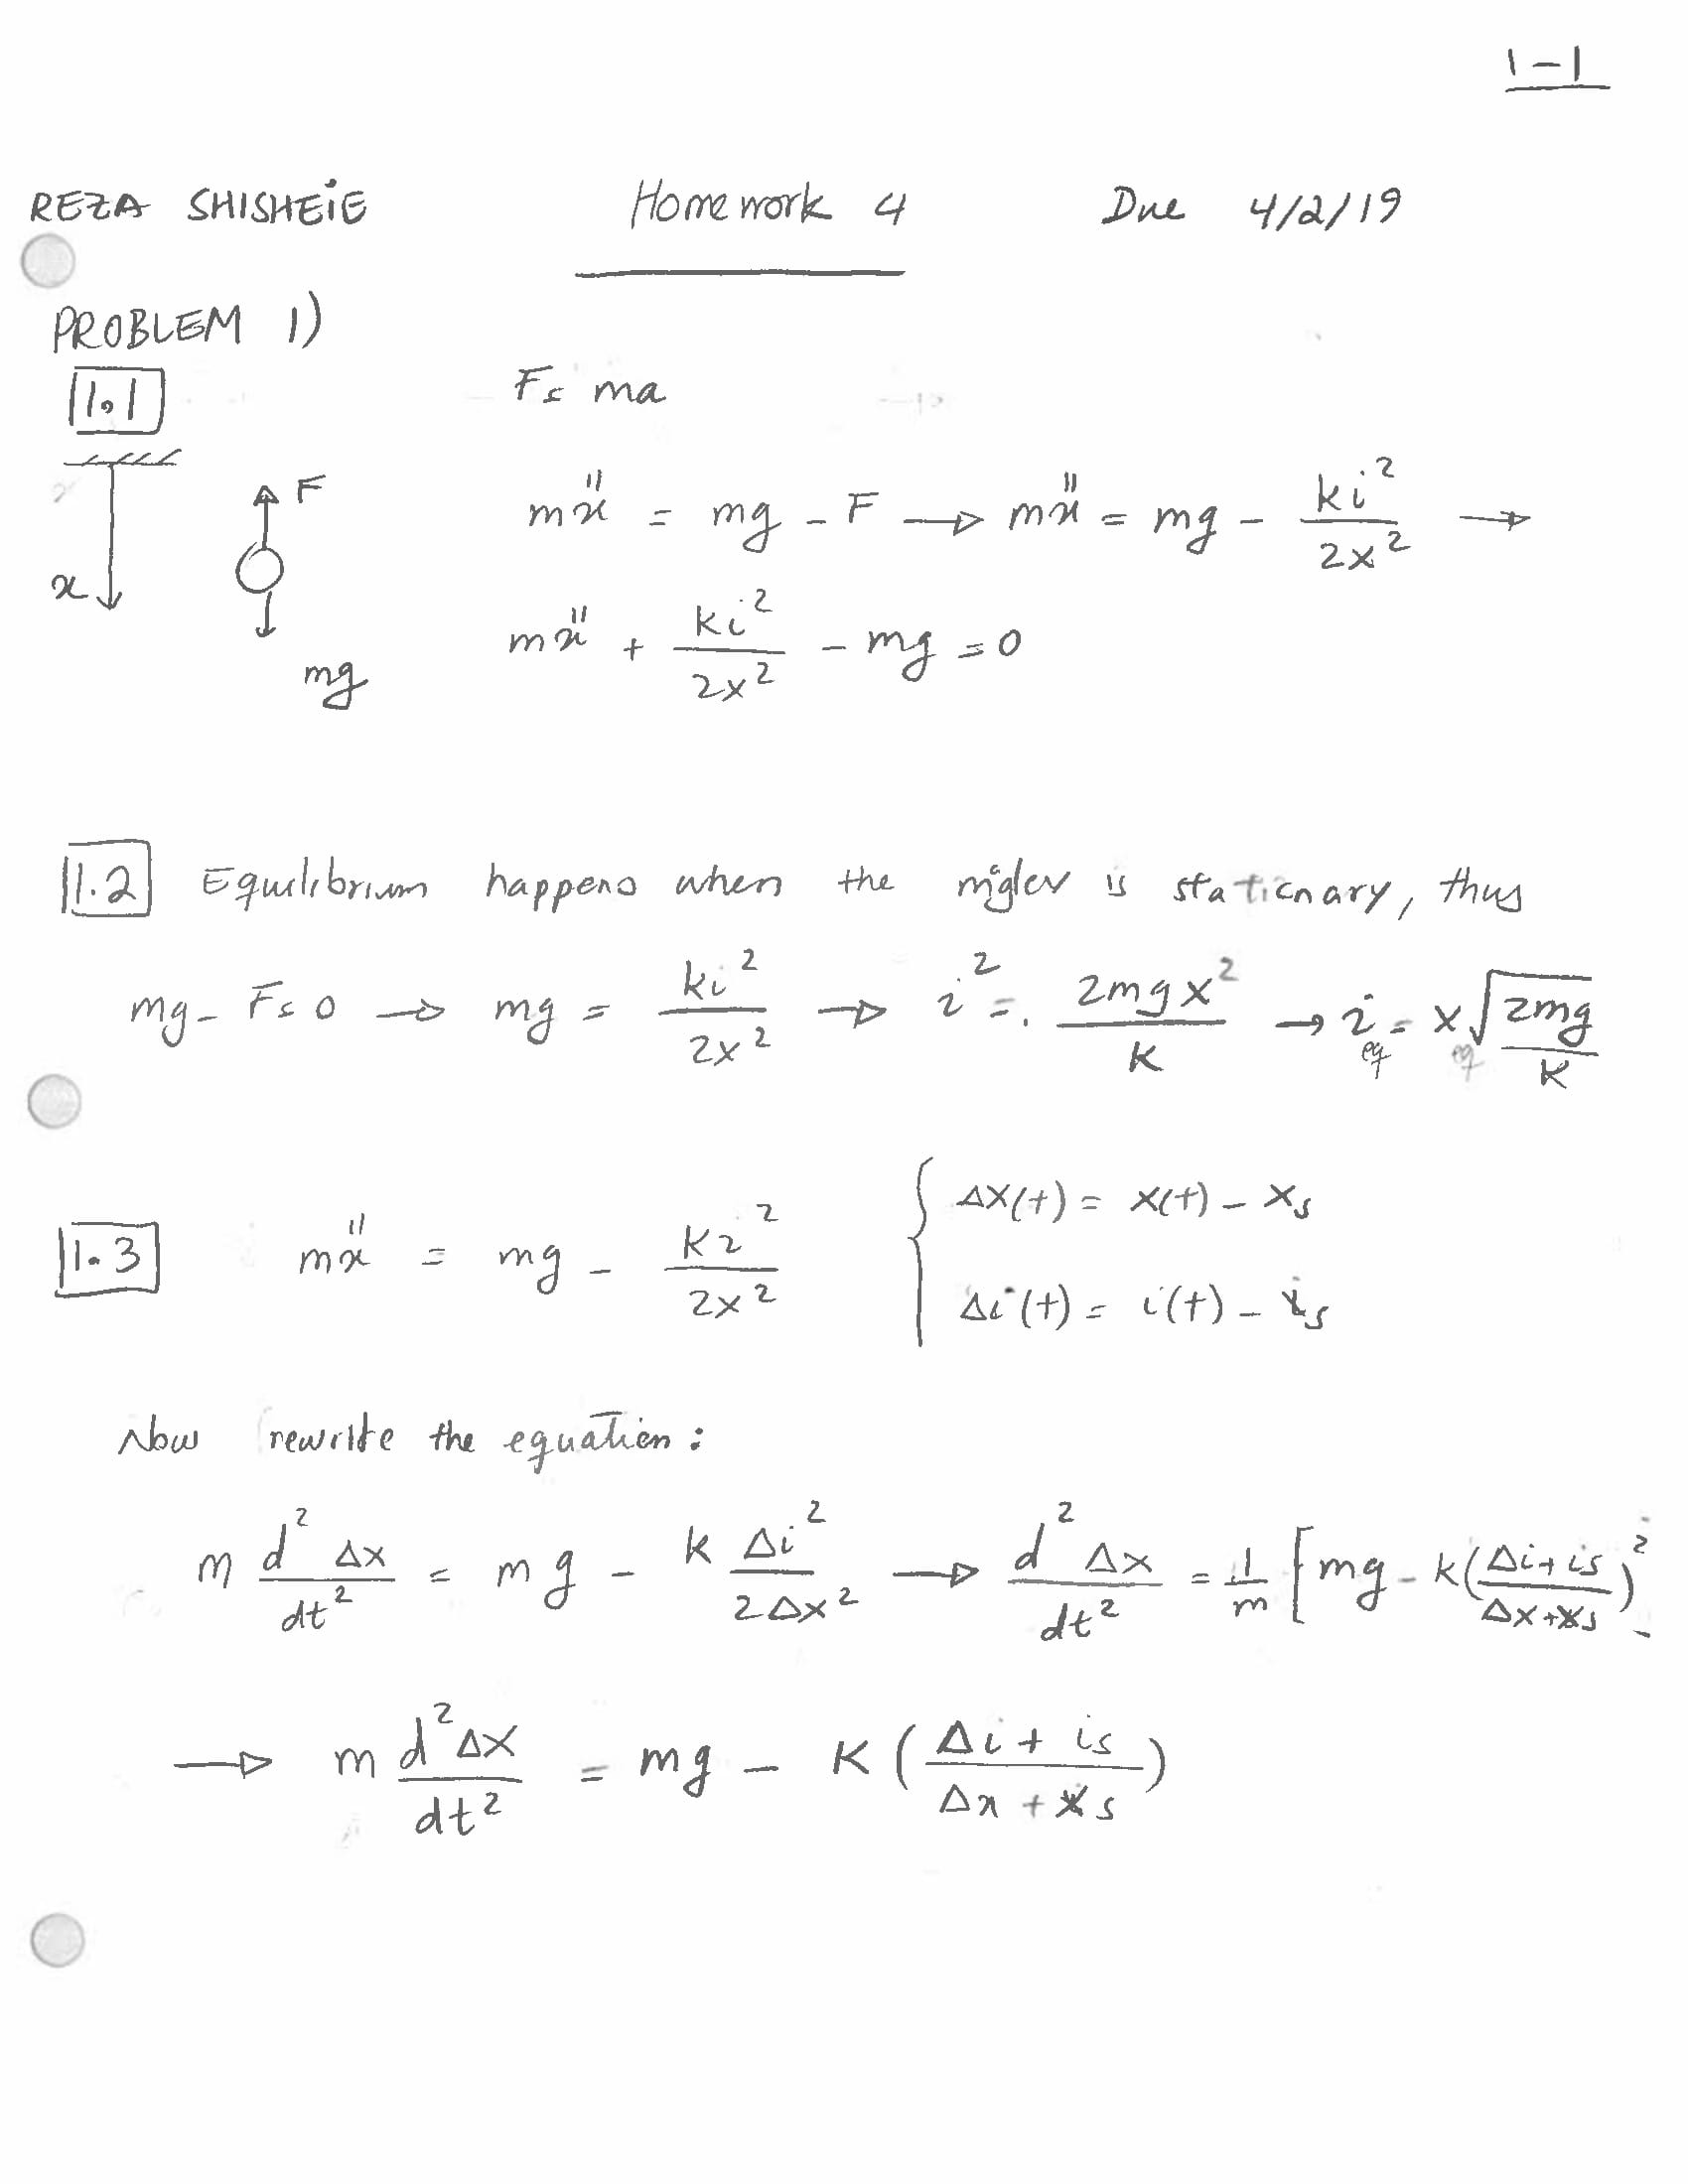 1-1
REZA SHISHEiE Homework 4 Due 4/2/19
PROBLEM 1)
1.1 F = ma
mẍ = mg - F → mẍ = mg - ki²/2x² →
mẍ + ki²/2x² - mg = 0
F
x
mg
1.2 Equilibrium happens when the maglev is stationary, thus
mg - F = 0 → mg = ki²/2x² → i² = 2mgx²/K → i_eq = x_eq √(2mg/K)
1.3 mẍ = mg - Ki²/2x² { Δx(t) = x(t) - x_s
Δi(t) = i(t) - i_s
Now rewrite the equation:
m d²Δx/dt² = mg - k Δi²/2Δx² → d²Δx/dt² = 1/m [mg - k(Δi + is/Δx + xs)²
→ m d²Δx/dt² = mg - K (Δi + is/Δx + xs)